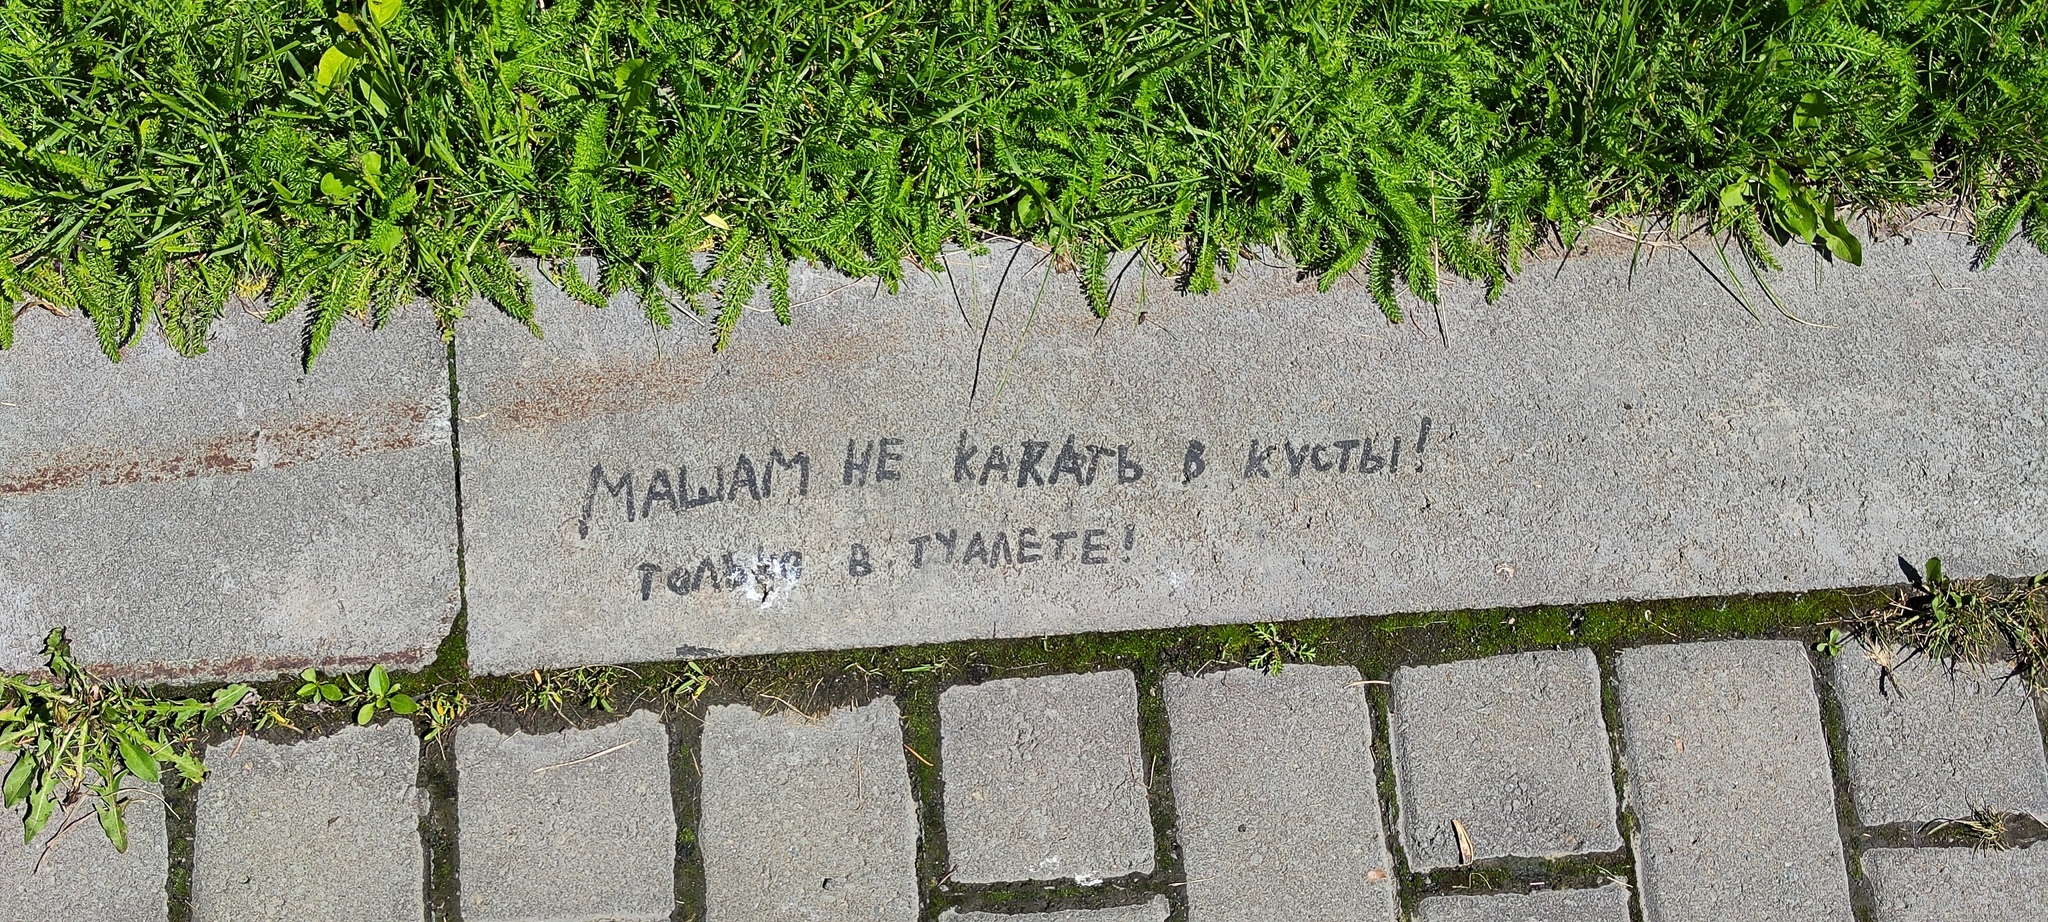 МАШАМ НЕ КАКАТЬ В КУСТЫ!
ТОЛЬКО В ТУАЛЕТЕ!